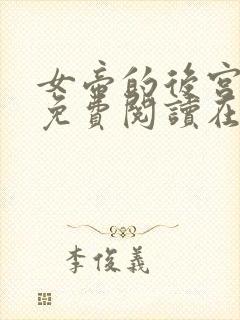 女帝的後宮
免費閱讀在
李俊義